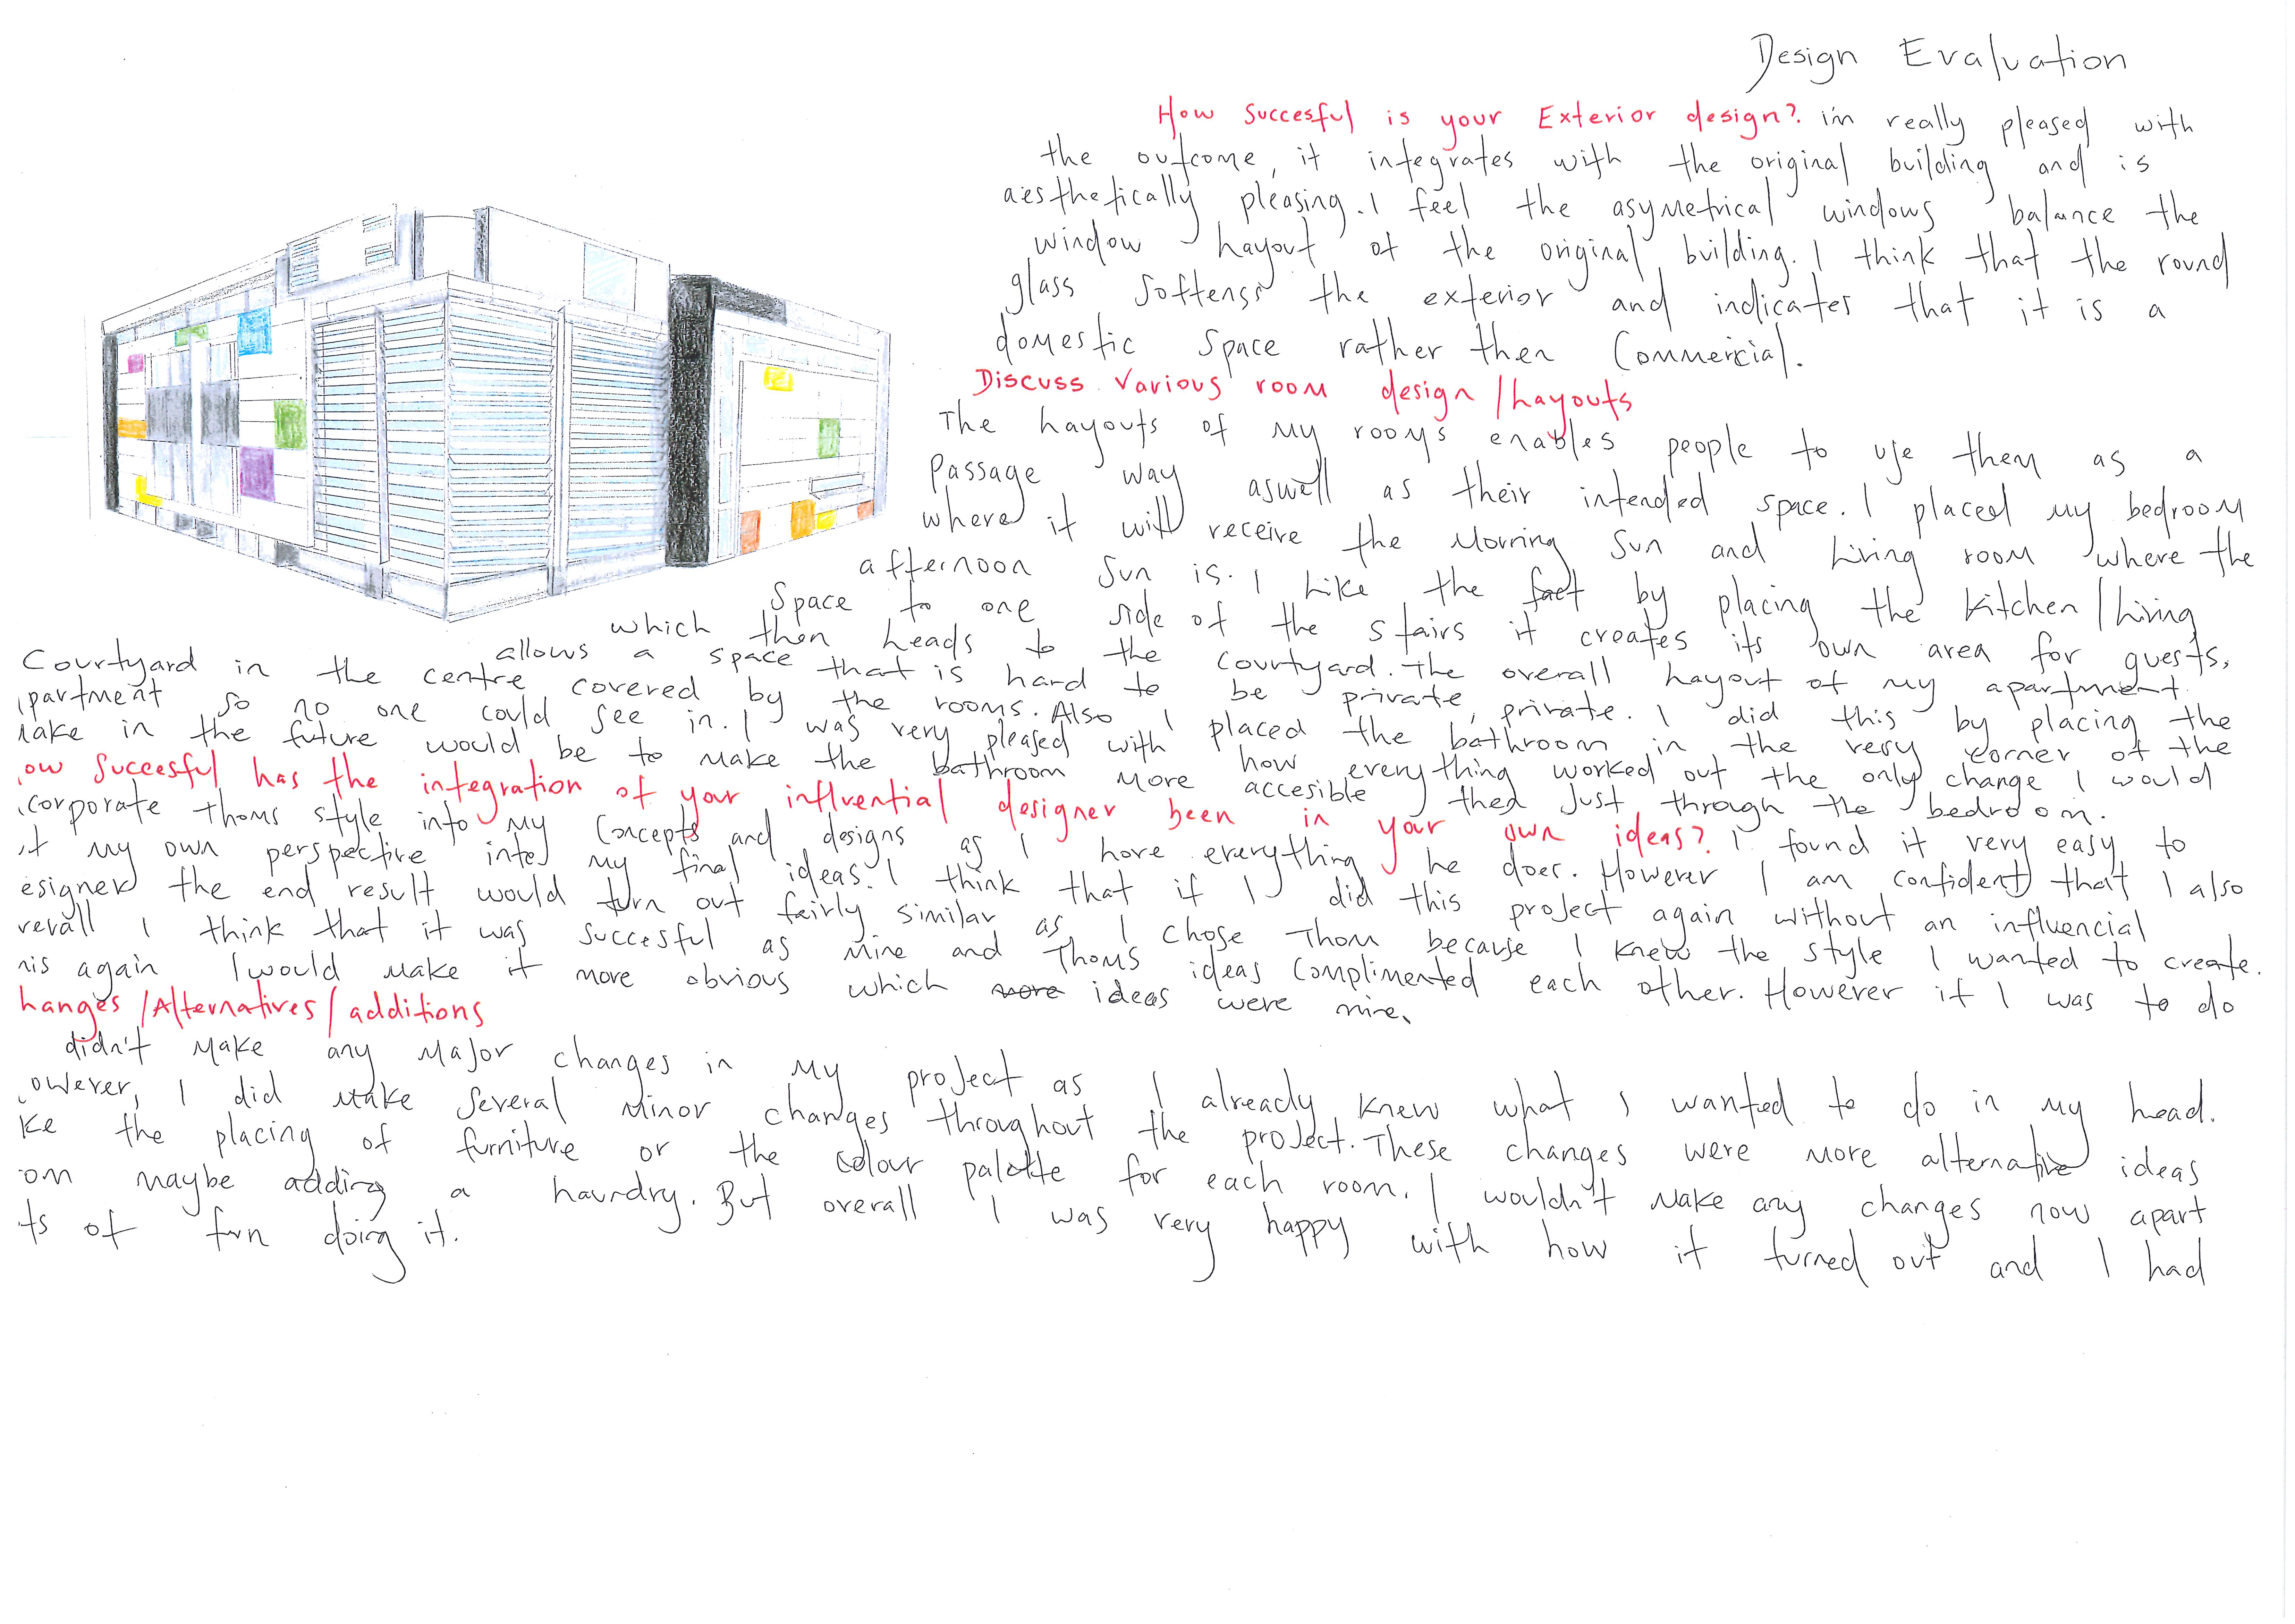 Design Evaluation
How Succesful is your Exterior design? i'm really pleased with
the outcome, it integrates with the original building and is
aiesthetically pleasing. I feel the asymetrical windows balance the
window Layout of the original building. I think that the round
glass softenss the exterior and indicates that it is a
domestic space rather then Commercial.
Discuss various room design / Layouts
The Layouts of my rooms enables people to use them as a
passage way aswell as their intended space. I placed my bedroom
where it will receive the Morning Sun and Living room where the
afternoon Sun is. I Like the fact by placing the Kitchen / Living
Space to one side of the stairs it creates its own area for guests,
which then heads to the courtyard. The overall Layout of my apartment
allows a space that is hard to be private, private. I did this by placing the
Courtyard in the centre covered by the rooms. Also I placed the bathroom in the very corner of the
partment so no one could see in. I was very pleased with how everything worked out the only change I would
ake in the future would be to make the bathroom more accesible then just through the bedroom.
ow Succesful has the integration of your influential designer been in your own ideas? I found it very easy to
corporate Thoms style into my Concepts and designs as I Love everything he does. However I am confident that I also
t my own perspective into my final ideas. I think that if I did this project again without an influencial
esigner the end result would turn out fairly similar as I chose Thom because I knew the style I wanted to create.
verall I think that it was succesful as mine and Thoms ideas complimented each other. However if I was to do
his again I would make it more obvious which more ideas were mine.
hanges / Alternatives / additions
didn't make any Major changes in my project as I already knew what I wanted to do in my head.
owever, I did make several minor changes throughout the project. These changes were more alternative ideas
Ke the placing of furniture or the colour palette for each room. I wouldn't make any changes now apart
om maybe adding a Laundry. But overall I was very happy with how it turned out and I had
ts of fun doing it.